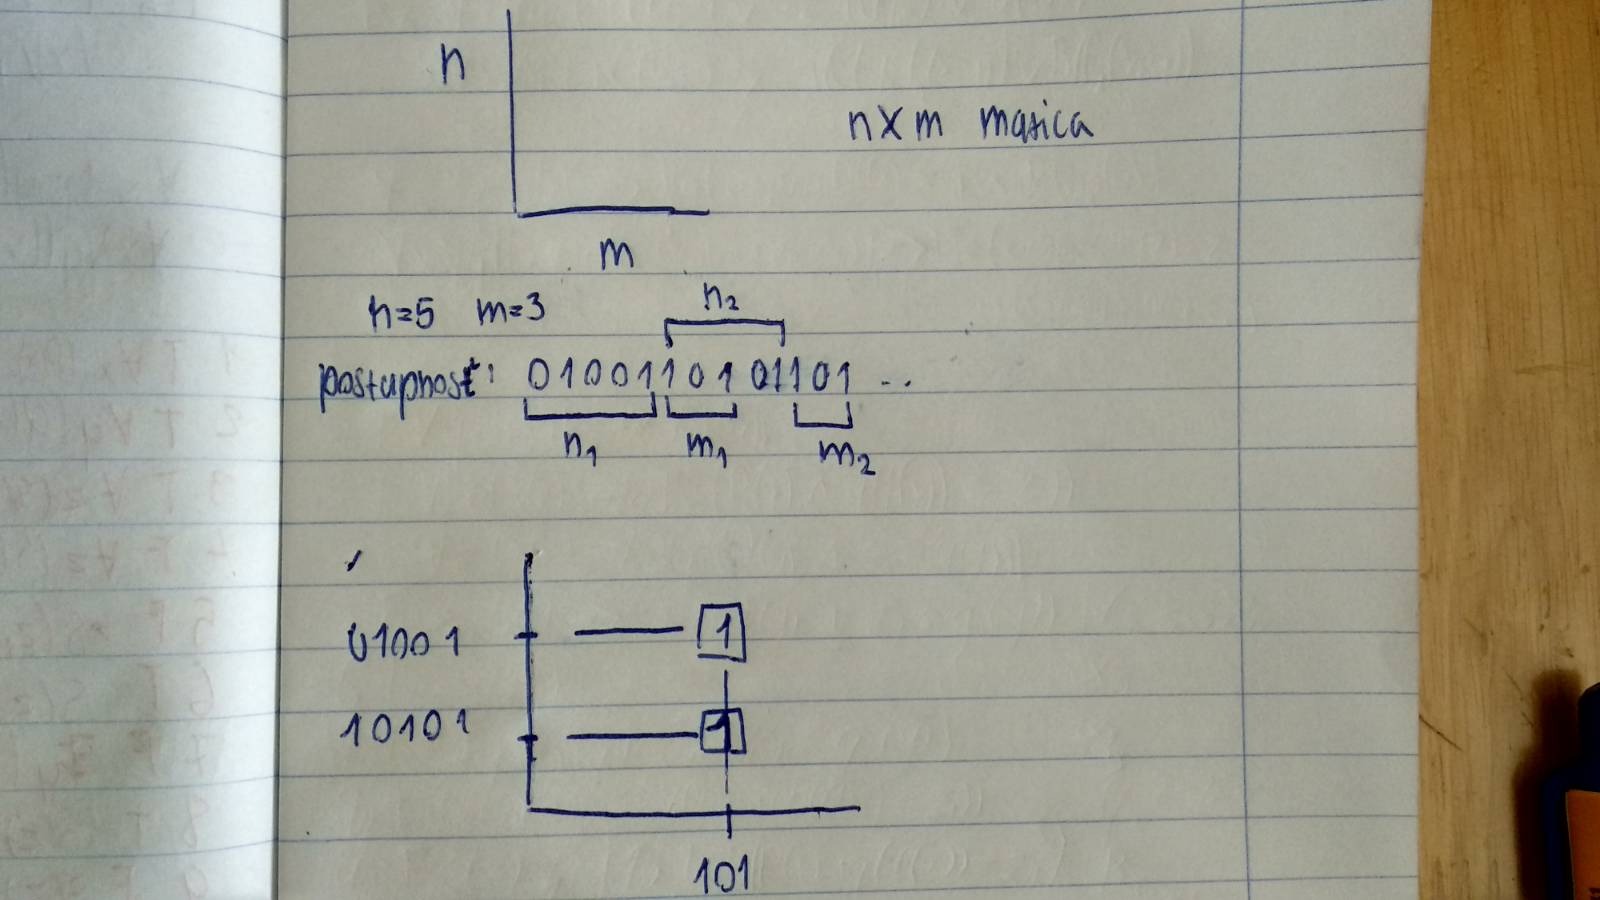 n
n×m matica
m
n=5 m=3
n₂
postupnosť: 0100110101101 ...
n₁ m₁ m₂
01001 1
10101 1
101